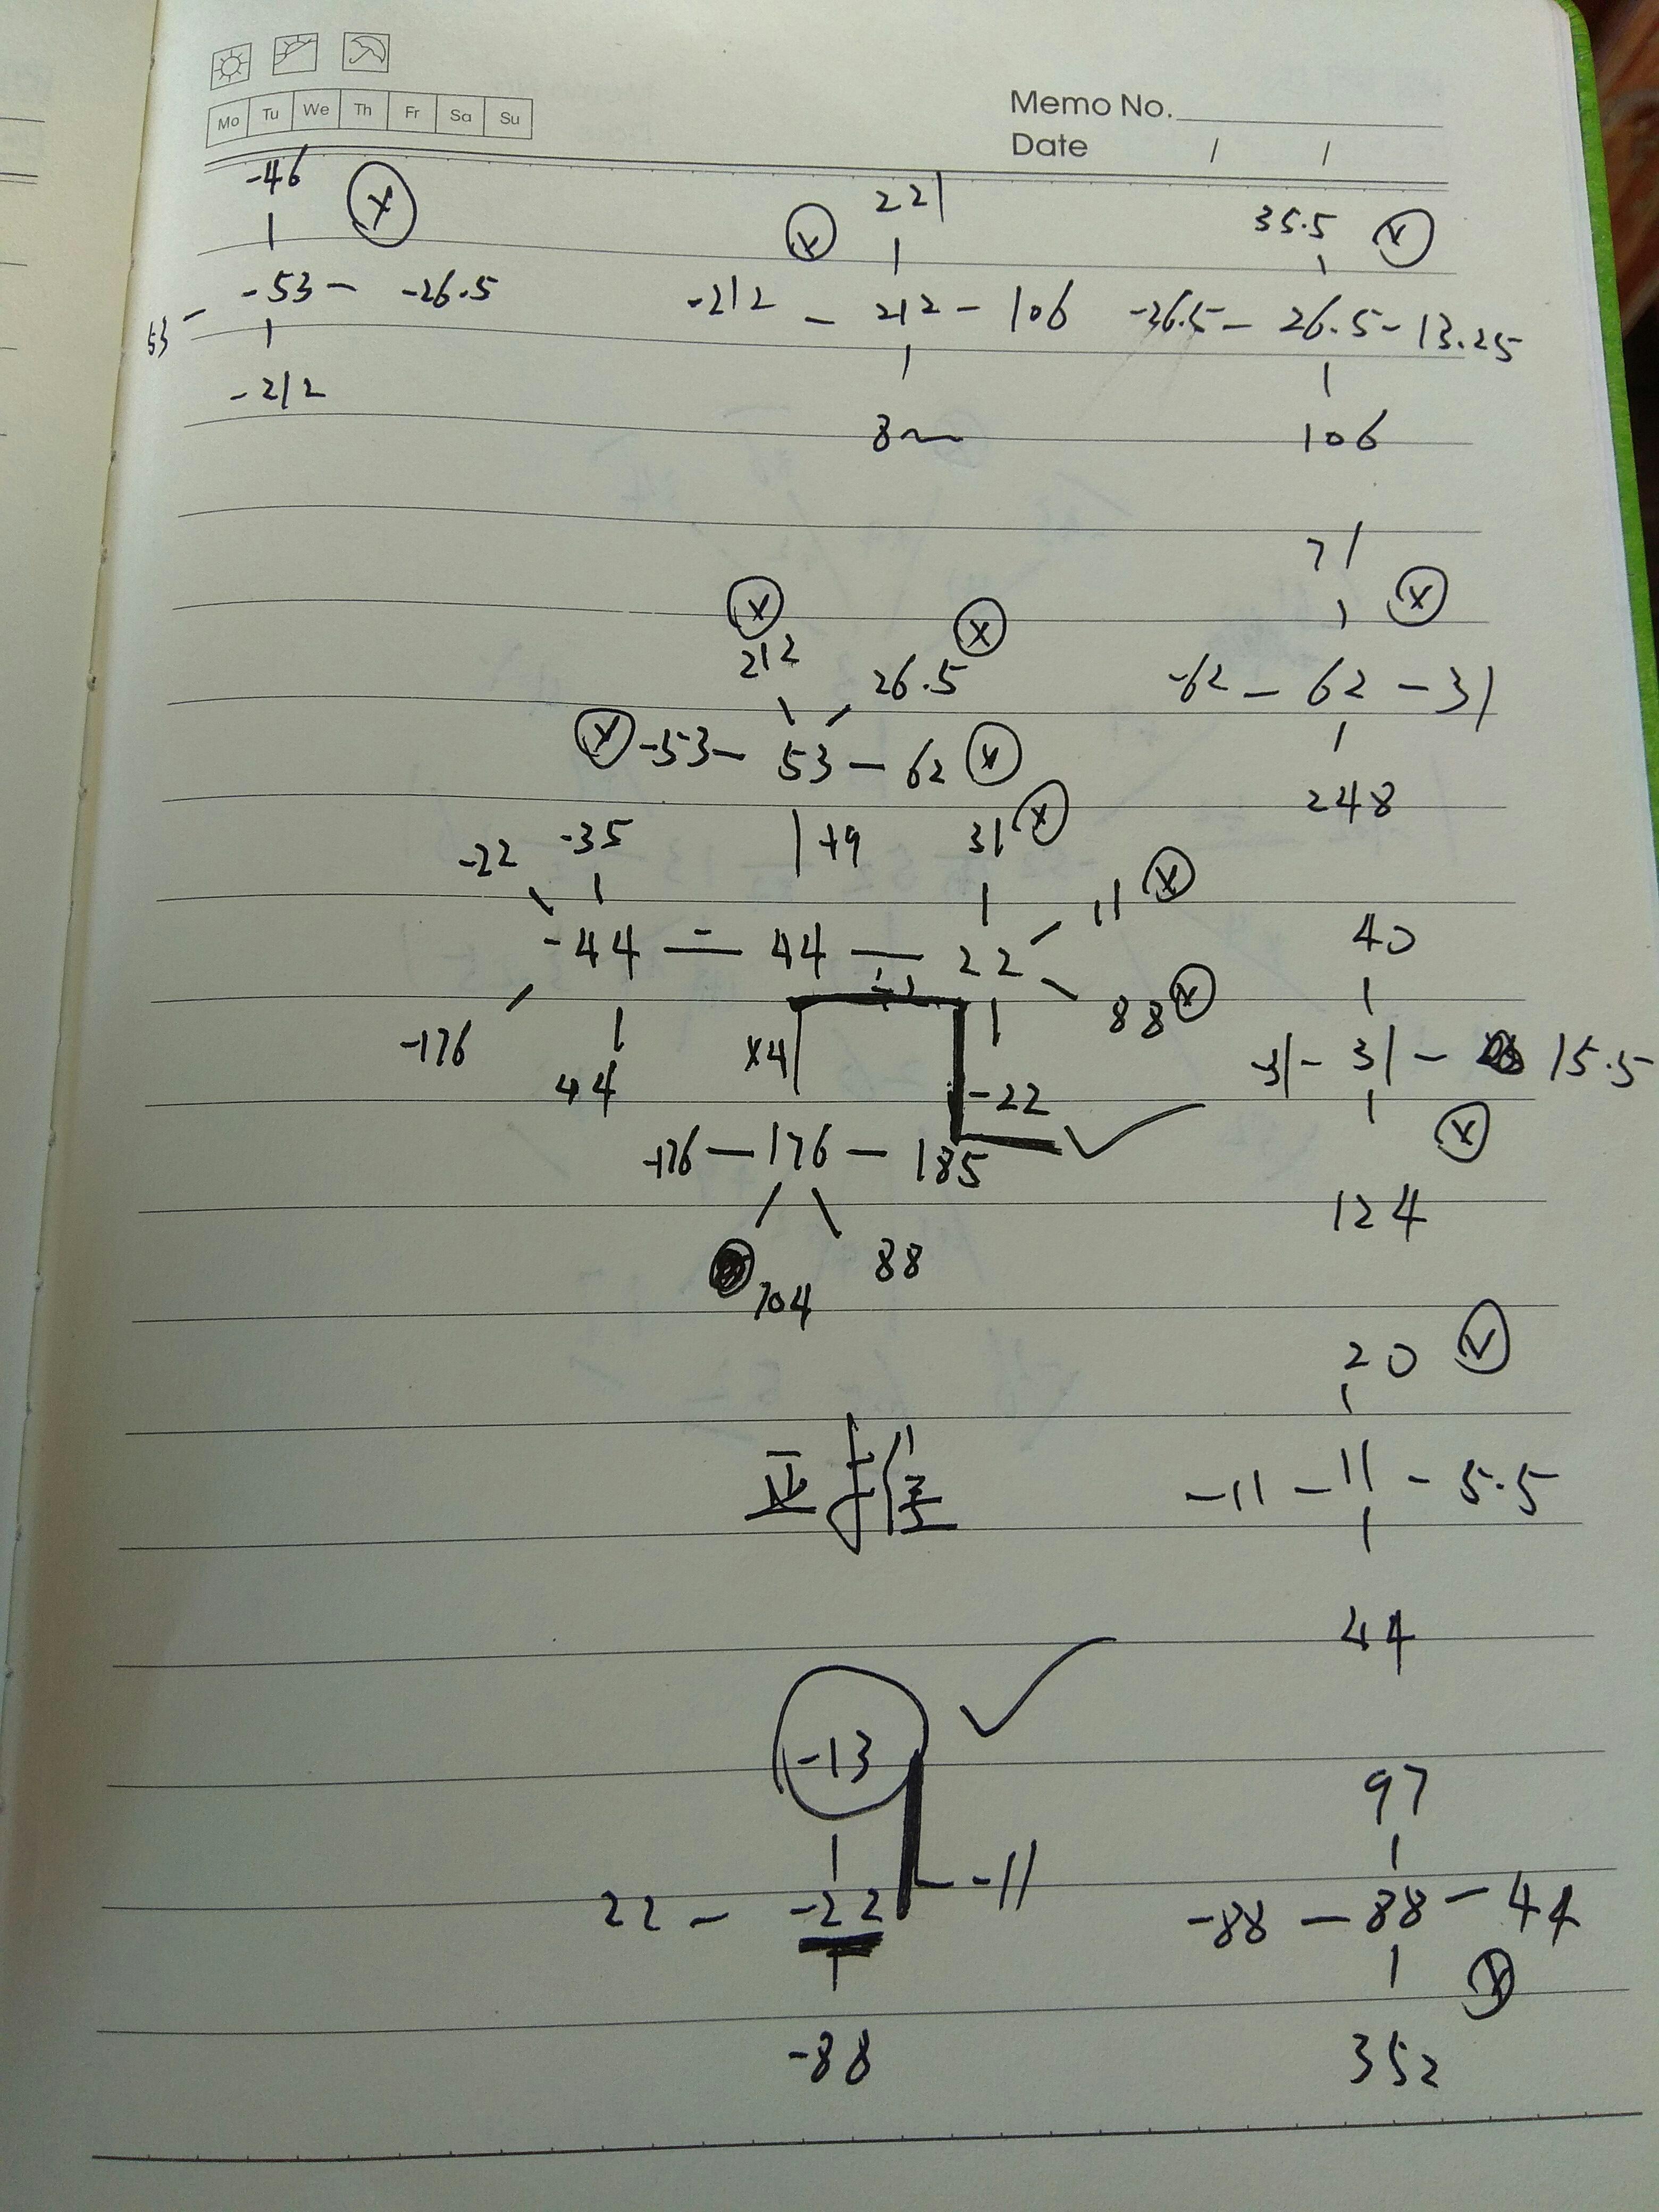 Mo Tu We Th Fr Sa Su
Memo No.
Date / /
-46
221
35.5
53 - -53 - -26.5
-212 - 212 - 106
-26.5 - 26.5 - 13.25
-212
106
71
212
26.5
-62 - 62 - 31
-53 - 53 - 62
248
-22 -35
+9
31
11
-44 - 44 - 22
40
88
-176
44
×4
-22
-31 - 31 - 15.5
-176 - 176 - 185
124
704
88
20
-11 - 11 - 5.5
44
-13
97
22 - -22 - -11
-88 - 88 - 44
-88
352